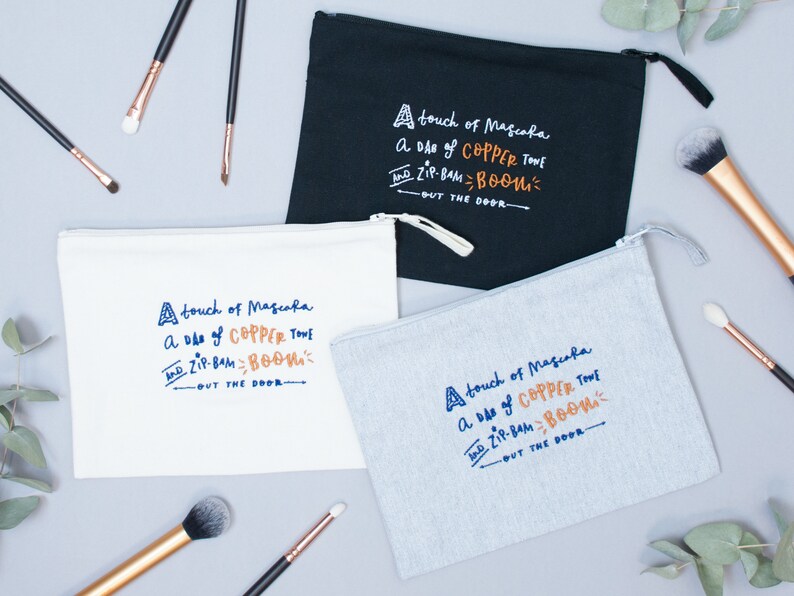 A touch of Mascara
A DAB of COPPER TONE
AND ZIP-BAM BOOM
OUT THE DOOR
A touch of Mascara
A DAB of COPPER TONE
AND ZIP-BAM BOOM
OUT THE DOOR
A touch of Mascara
A DAB of COPPER TONE
AND ZIP-BAM BOOM
OUT THE DOOR